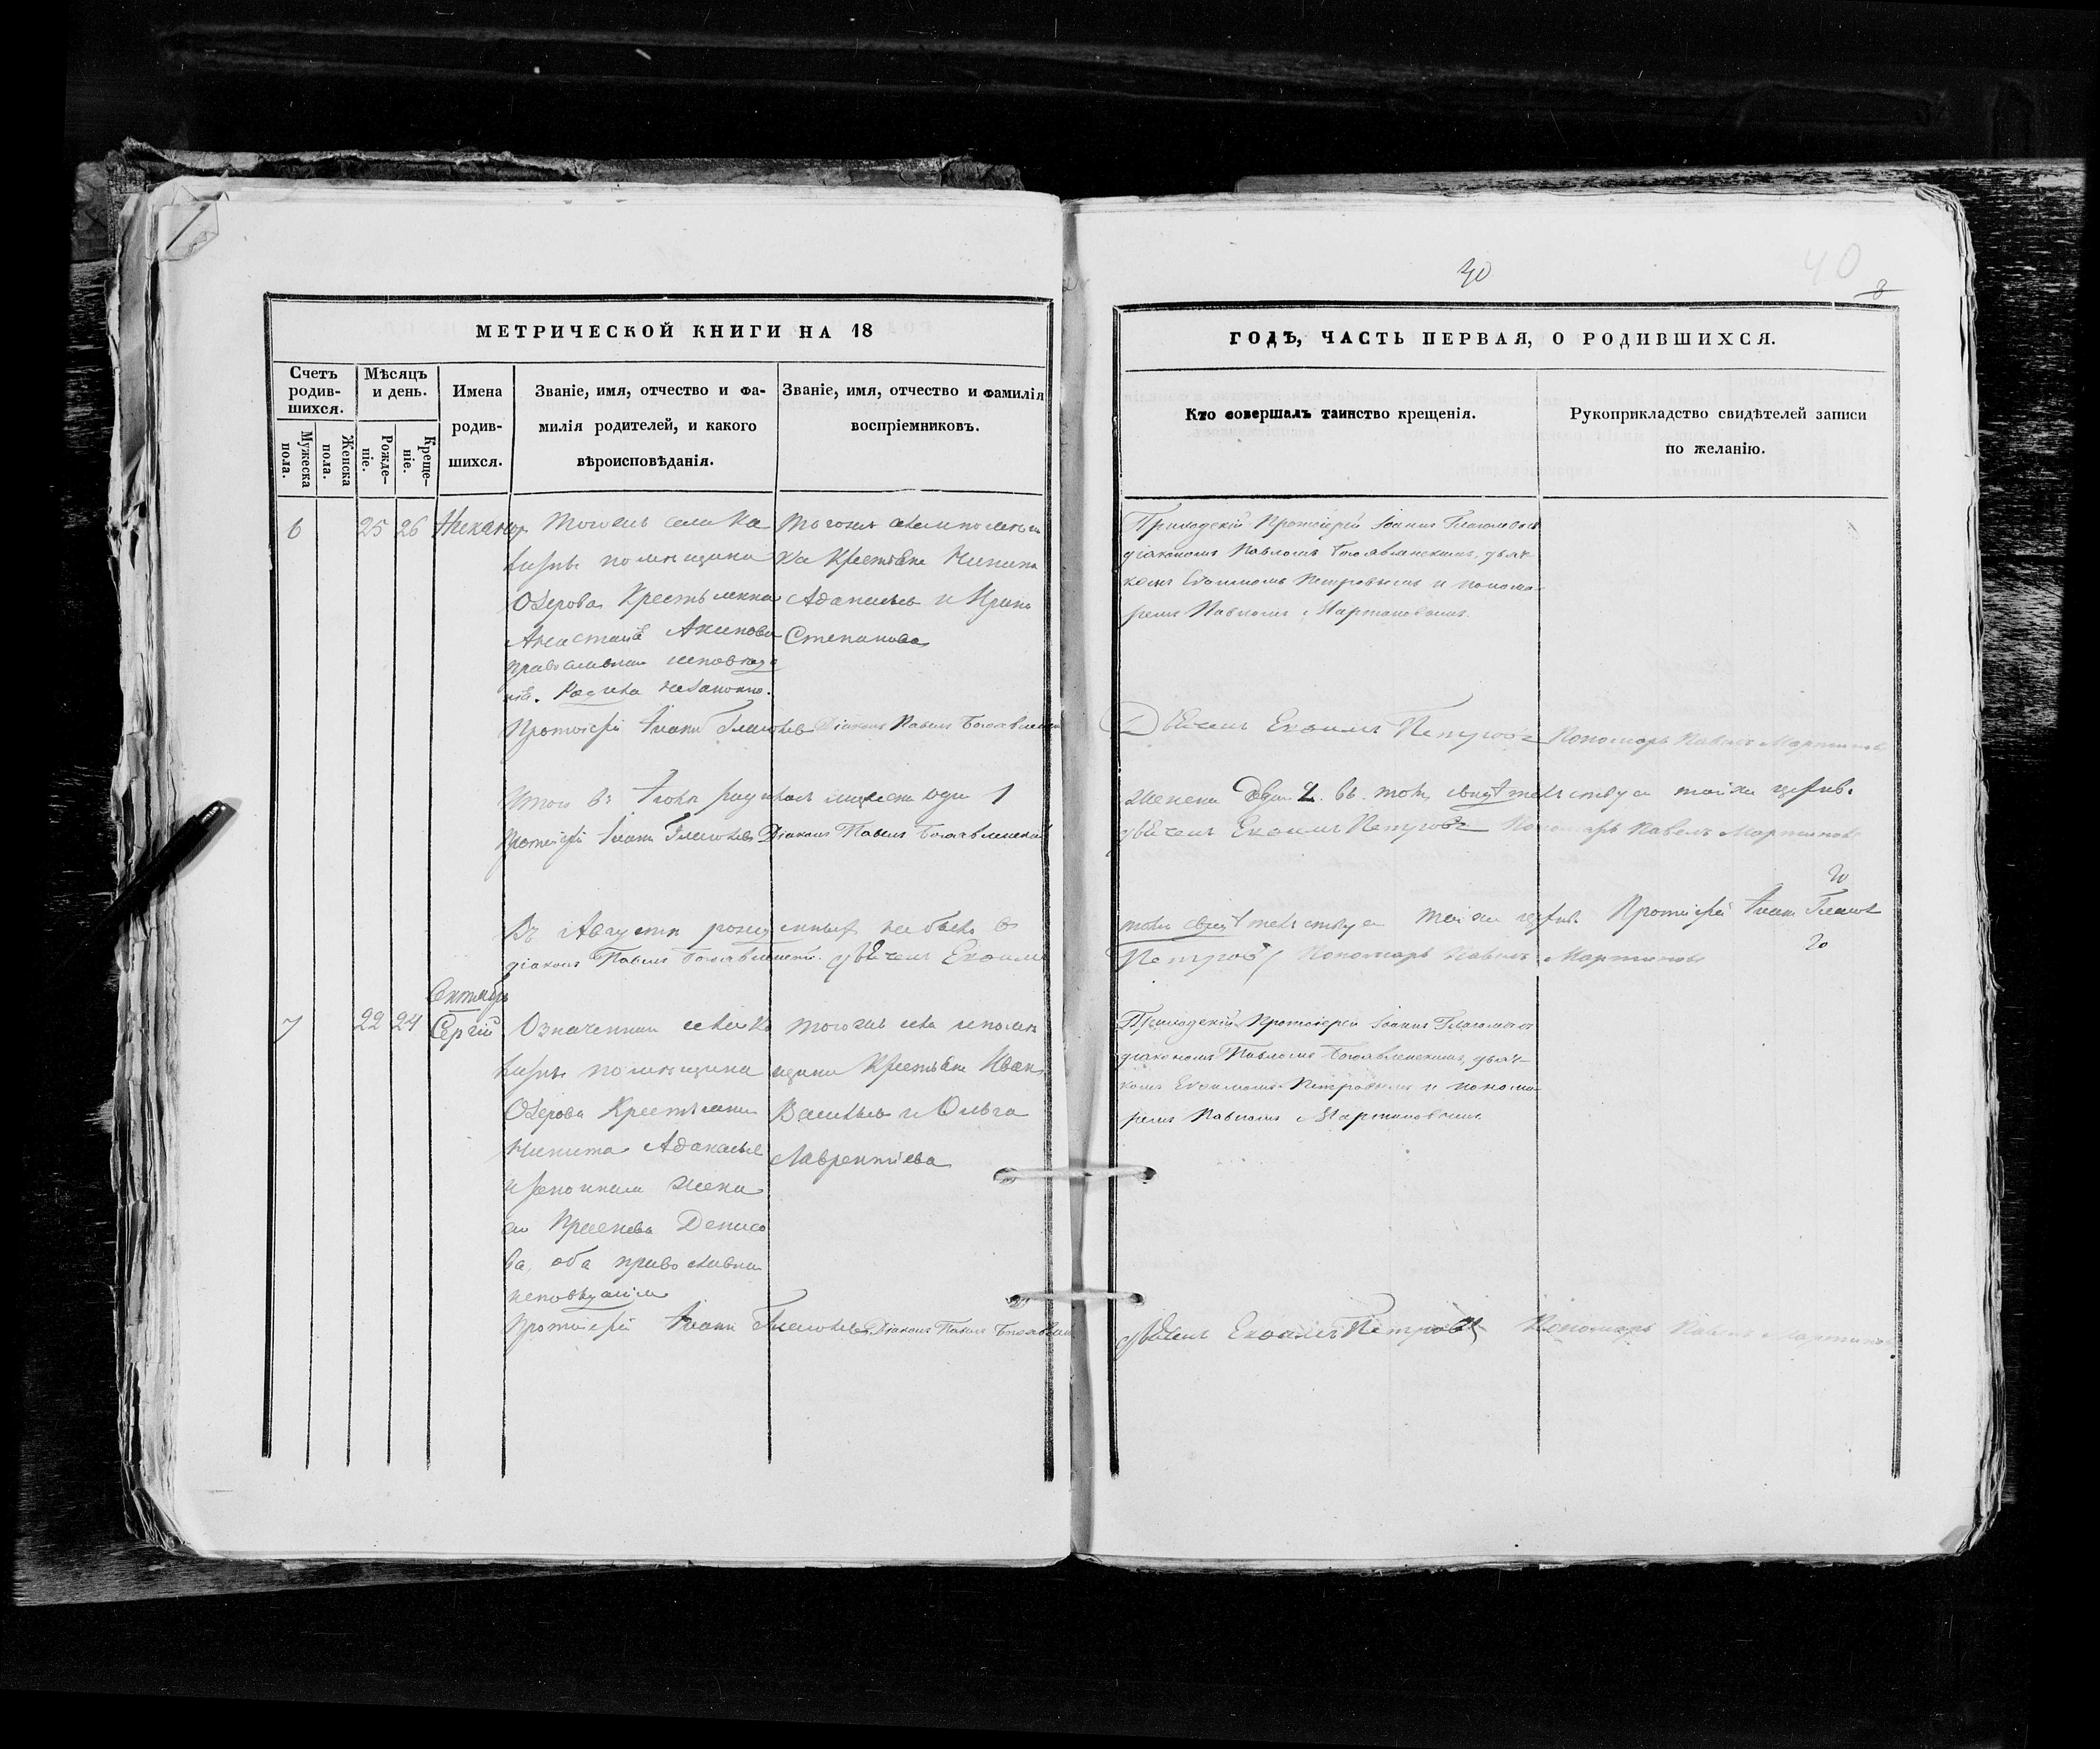 40
40
8
МЕТРИЧЕСКОЙ КНИГИ НА 18
Счетъ родив-шихся.
Мужеска пола.
Женска пола.
Мѣсяцъ и день.
Рожде-ніе.
Креще-ніе.
Имена
родив-
шихся.
Званіе, имя, отчество и фа-
милія родителей, и какого
вѣроисповѣданія.
Званіе, имя, отчество и фамилія
воспріемниковъ.
6
25
26
Никаноръ
Тогожъ села Ка
помѣщика
Озерова Крестьянка
Анастасія
православнаго исповѣда
нія. незаконно.
Тогожъ села помѣщи
ка Крестьяне Никита
Афанасьевъ и Ирина
Степанова
Протоіерей Іоаннъ Глаголевъ Діаконъ Павелъ Богоявленскій
Итого въ Іюлѣ мужеска одинъ 1
Протоіерей Іоаннъ Глаголевъ Діаконъ Павелъ Богоявленскій
Въ Августѣ рожденныхъ не было въ
діаконъ Павелъ Богоявленскій дьячекъ Евфимъ
7
22
24
Сергій
Означеннаго села Ка
помѣщика
Озерова Крестьянинъ
Никита Афанасьевъ
и законная жена
его Денисо
ва, оба православнаго
исповѣданія
тогожъ села помѣ
щика Крестьяне Иванъ
Васильевъ и Ольга
Лаврентіева
Протоіерей Іоаннъ Глаголевъ Діаконъ Павелъ Богоявленскій
ГОДЪ, ЧАСТЬ ПЕРВАЯ, О РОДИВШИХСЯ.
Кто совершалъ таинство крещенія.
Рукоприкладство свидѣтелей записи
по желанію.
Приходскій Протоіерей Іоаннъ Глаголевъ съ
діакономъ Павломъ Богоявленскимъ, дьяч-
комъ Евфимомъ Петровымъ и понома-
ремъ Павломъ Мартиновымъ.
Дьячекъ Евфимъ Петровъ Пономарь Павелъ Мартиновъ
женска въ томъ свидѣтельствуемъ той же церкви
дьячекъ Евфимъ Петровъ Пономарь Павелъ Мартиновъ
томъ свидѣтельствуемъ той же церкви Протоіерей Іоаннъ Глаголевъ
Петровъ Пономарь Павелъ Мартиновъ
Приходскій Протоіерей Іоаннъ Глаголевъ съ
діакономъ Павломъ Богоявленскимъ, дьяч-
комъ Евфимомъ Петровымъ и понома-
ремъ Павломъ Мартиновымъ.
Дьячекъ Евфимъ Петровъ Пономарь Павелъ Мартиновъ